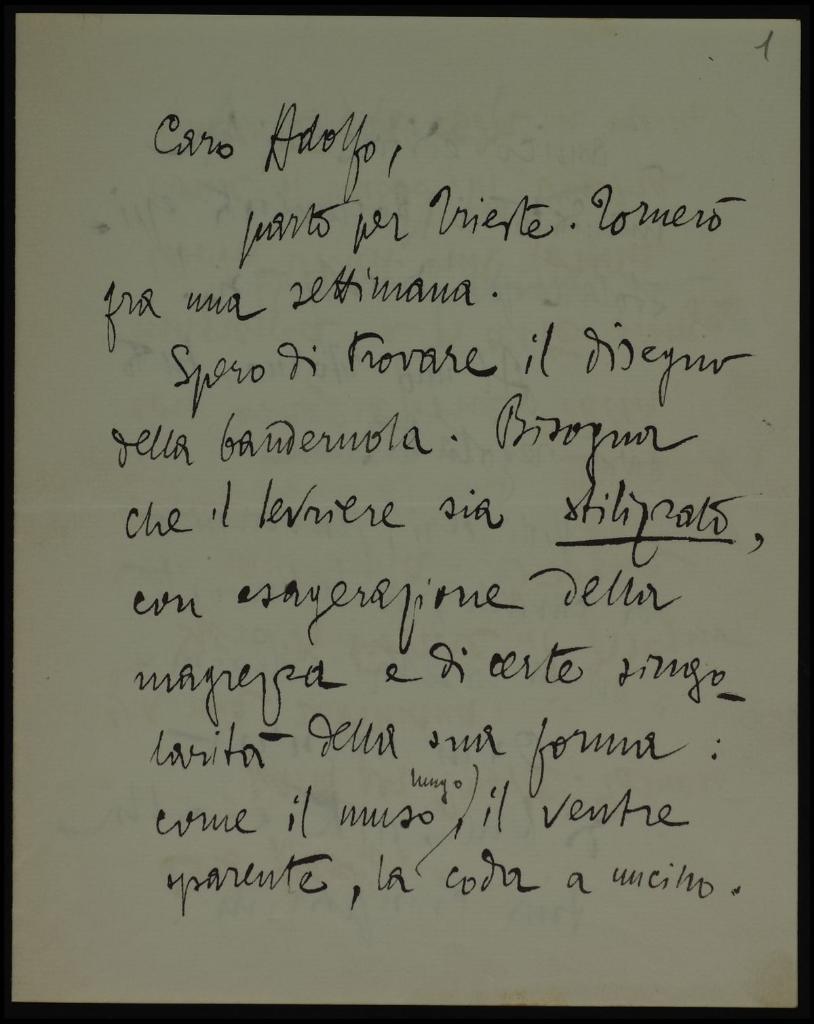 1
Caro Adolfo,
parto per Trieste. Tornerò
fra una settimana.
Spero di trovare il disegno
della banderuola. Bisogna
che il levriere sia stilizzato,
con esagerazione della
magrezza e di certe singo-
larità della sua forma:
come il muso lungo, il ventre
sparente, la coda a uncino.